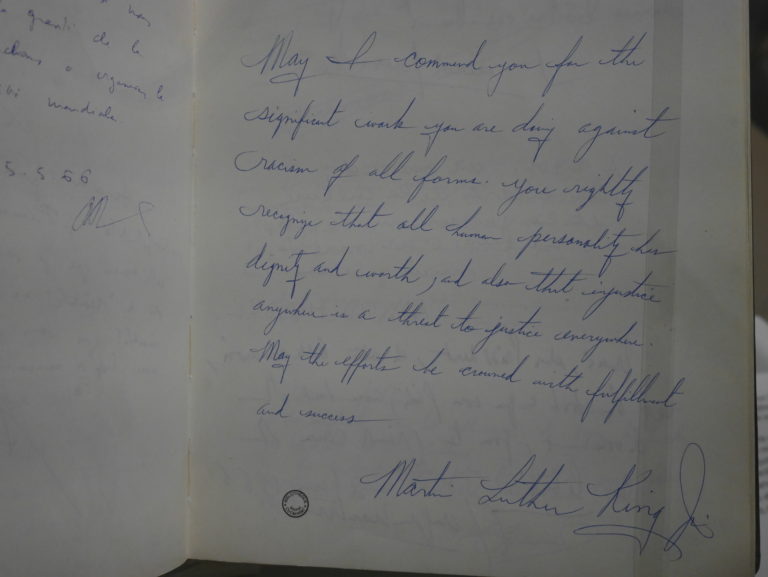 mondiale
May I commend you for the
significant work you are doing against
racism of all forms. You rightly
recognize that all human personality has
dignity and worth, and also that injustice
anywhere is a threat to justice everywhere.
May the efforts be crowned with fulfillment
and success
Martin Luther King Jr.